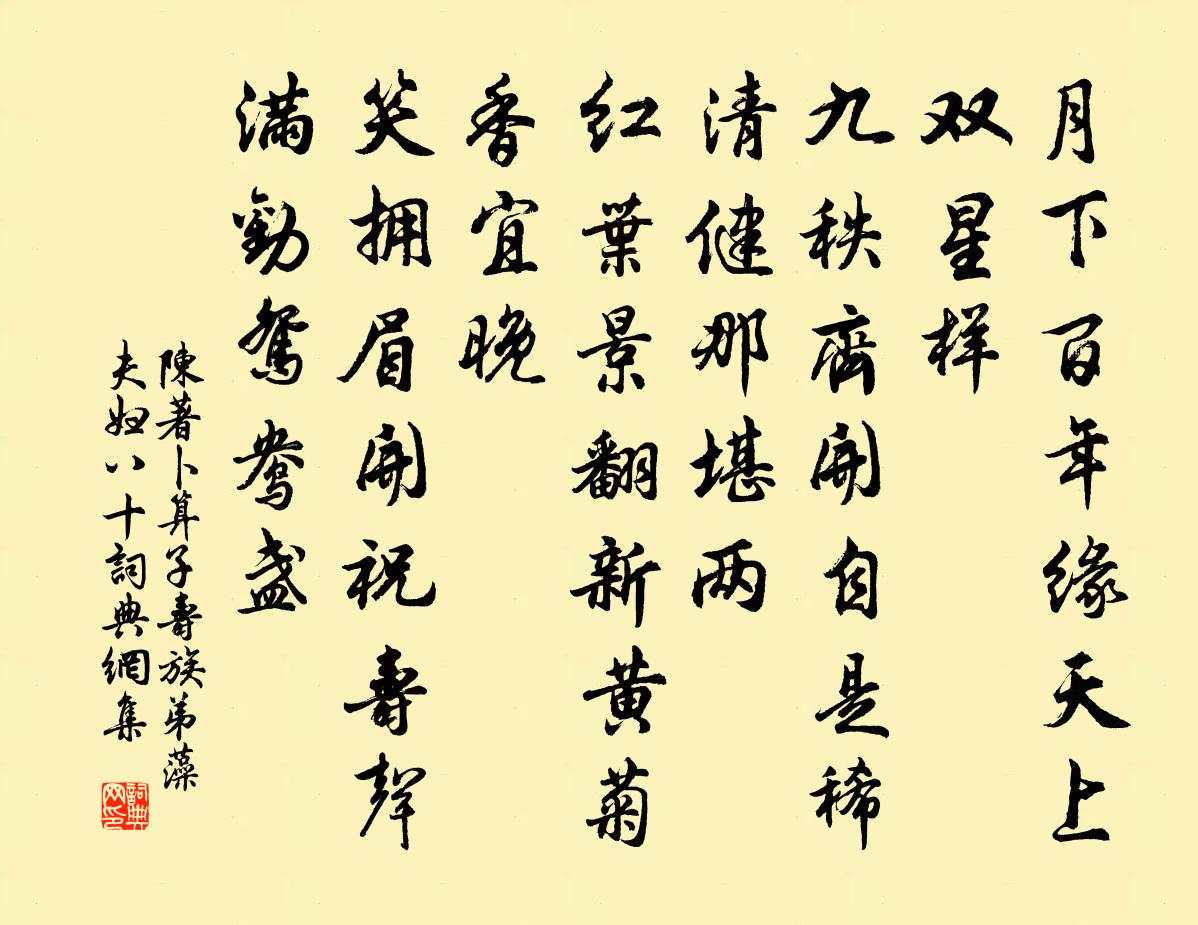 月下百年缘天上
双星样
九秩齊開自是稀
清健那堪两
红葉景翻新黄菊
香宜晚
笑拥眉開祝壽聲
满勸鴛鴦盏
陳著卜算子壽族弟藻
夫妇八十詞典網集
詞典
网印